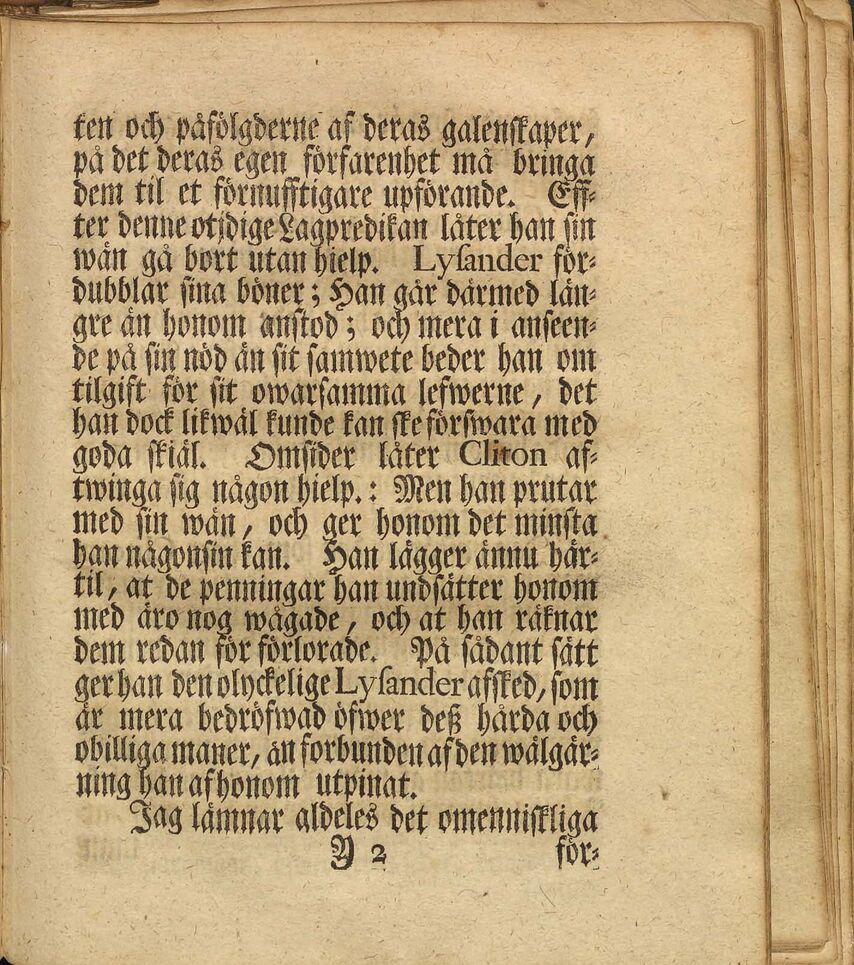 ten och påfölgderne af deras galenskaper,
på det deras egen förfarenhet må bringa
dem til et förnufftigare upförande. Eff-
ter denne otjdige Lagpredikan låter han sin
wän gå bort utan hielp. Lysander för-
dubblar sina böner; Han går därmed län-
gre än honom anstod; och mera i anseen-
de på sin nöd än sit samwete beder han om
tilgift för sit owarsamma lefwerne, det
han dock likwäl kunde kan ske förswara med
goda skiäl. Omsider låter Cliton af-
twinga sig någon hielp.: Men han prutar
med sin wän, och ger honom det minsta
han någonsin kan. Han lägger ännu här-
til, at de penningar han undsätter honom
med äro nog wågade, och at han räknar
dem redan för förlorade. På sådant sätt
ger han den olyckelige Lysander afsked, som
är mera bedröfwad öfwer deß hårda och
obilliga maner, än forbunden af den wälgär-
ning han af honom utpinat.
Jag lämnar aldeles det omenniskliga
Y 2 för-